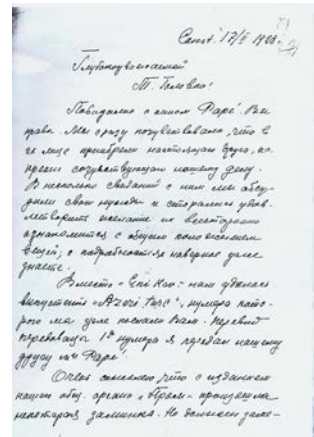 Const. 17/V 1928 г.
Глубокоуважаемый
Т. Головко!
Повидались с Фаре. Вы
правы. Мы сразу почувствовали, что в
его лице приобрели настоящего друга, ис-
кренно сочувствующего нашему делу.
В несколько свиданий с ним мы обсу-
дили свои нужды и старались удов-
летворить желание их всесторонне
ознакомиться с общим положением
вещей; о подробностях наверное уже
знаете.
Вместо „Eni Kav." нам удалось
выпустить „Azeri Turc", номера кото-
рого мы уже послали Вам. Перевод
передовицы 1го нумера я передал нашему
другу mr Фаре.
Очень сожалею, что с изданием
нашего общ. органа произошла
некоторая заминка. Но должен заме-